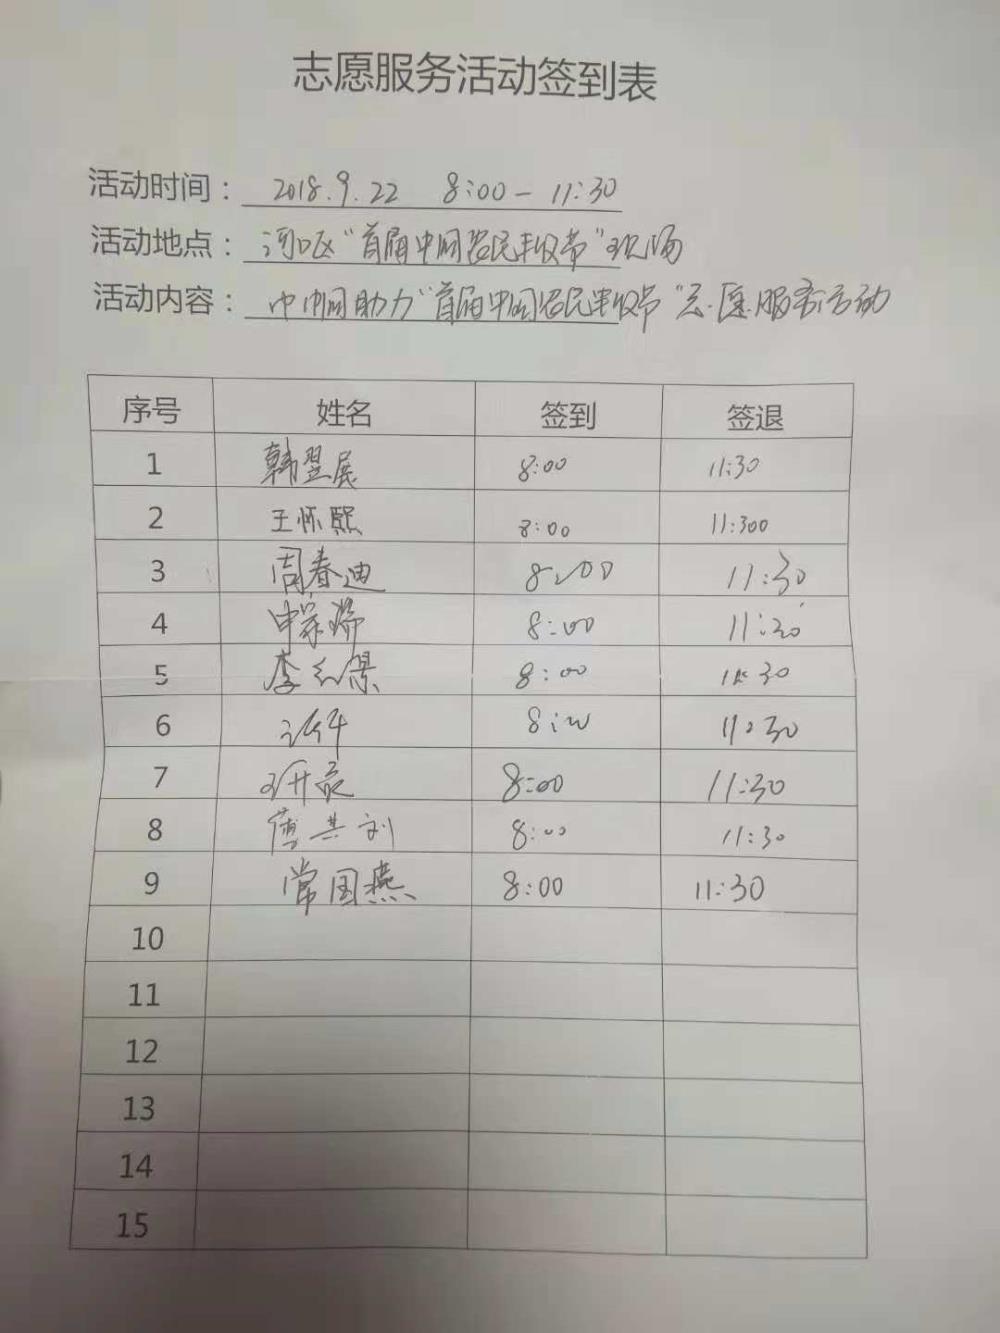 志愿服务活动签到表
活动时间：2018.9.22 8:00-11:30
活动地点：河口区"首届中国农民丰收节"现场
活动内容：巾帼助力"首届中国农民丰收节"志愿服务活动
序号 姓名 签到 签退
1 韩翌展 8:00 11:30
2 王怀熙 8:00 11:300
3 周春迪 8:00 11:30
4 8:00 11:30
5 8:00 11:30
6 8:00 11:30
7 8:00 11:30
8 8:00 11:30
9 常国燕 8:00 11:30
10
11
12
13
14
15